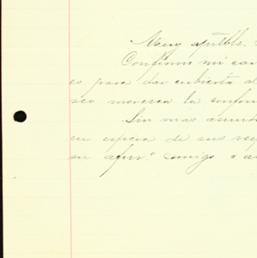 Muy apbble.
Confirmo mi car
es para dar cubierta a
seo merezca la confor
Sin mas asunto
en espera de sus resp
su afmo. amigo